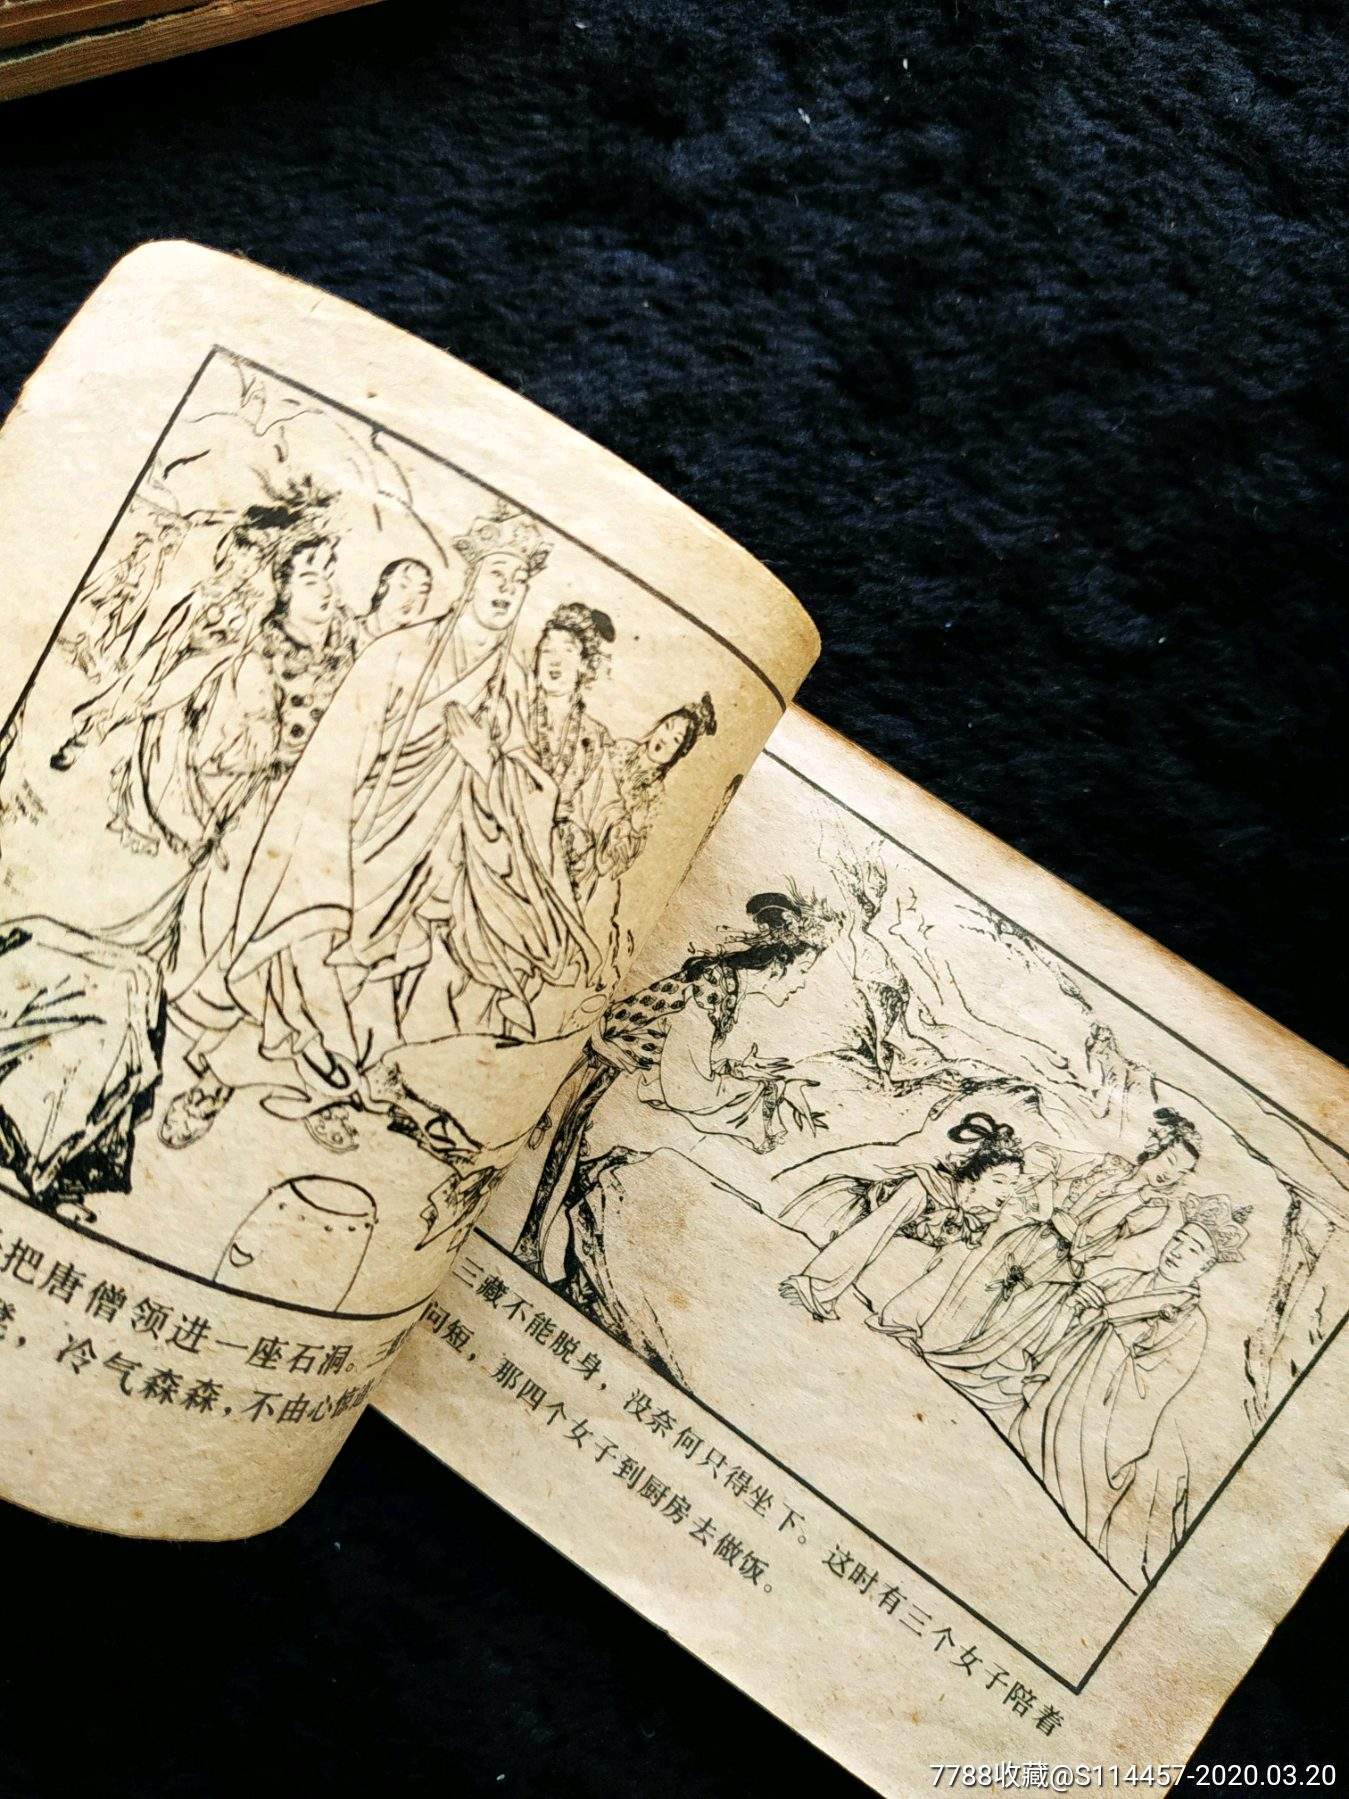 把唐僧领进一座石洞。三
，冷气森森，不由心惊
三藏不能脱身，没奈何只得坐下。这时有三个女子陪着
问短，那四个女子到厨房去做饭。
7788收藏@S114457-2020.03.20